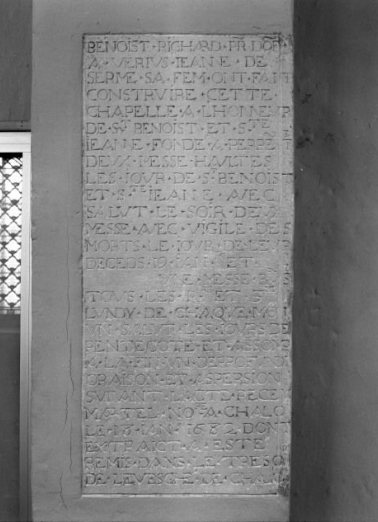 BENOIST·RICHARD·PR·DOR
A·VERTVS·IEANNE·DE
SERME·SA·FEM·ONT·FAIT
CONSTRVIRE·CETTE
CHAPELLE·A·LHONNEVR
DE·ST·BENOIST·ET·STE
IEANNE·FONDE·A·PERPET
DEVX·MESSE·HAVLTES
LES·IOVR·DE·ST·BENOIST
ET·STE·IEANNE·AVEC
SALVT·LE·SOIR·DE
MESSE·AVEC·VIGILE·DE·S
MORTS·LE·IOVR·DE·LEVR
DECEDS·ET
VNE·MESSE
TOVS·LES·ET
LVNDY·DE·CHAQVE·MOI
VN·SALVT·LES·IOVRS·DE
PENTECOTE·ET·ASSOMP
A·LA·FIN
ORAISON·ET·ASPERSION
SVIVANT·LACTE·RECE
TEL·NOT·A·CHALO
LE·IAN·1682·DONT
EXTRAICT·A·ESTE
REMIS·DANS·LE·TRESO
DE·LEVESCHE·DE·CHAL